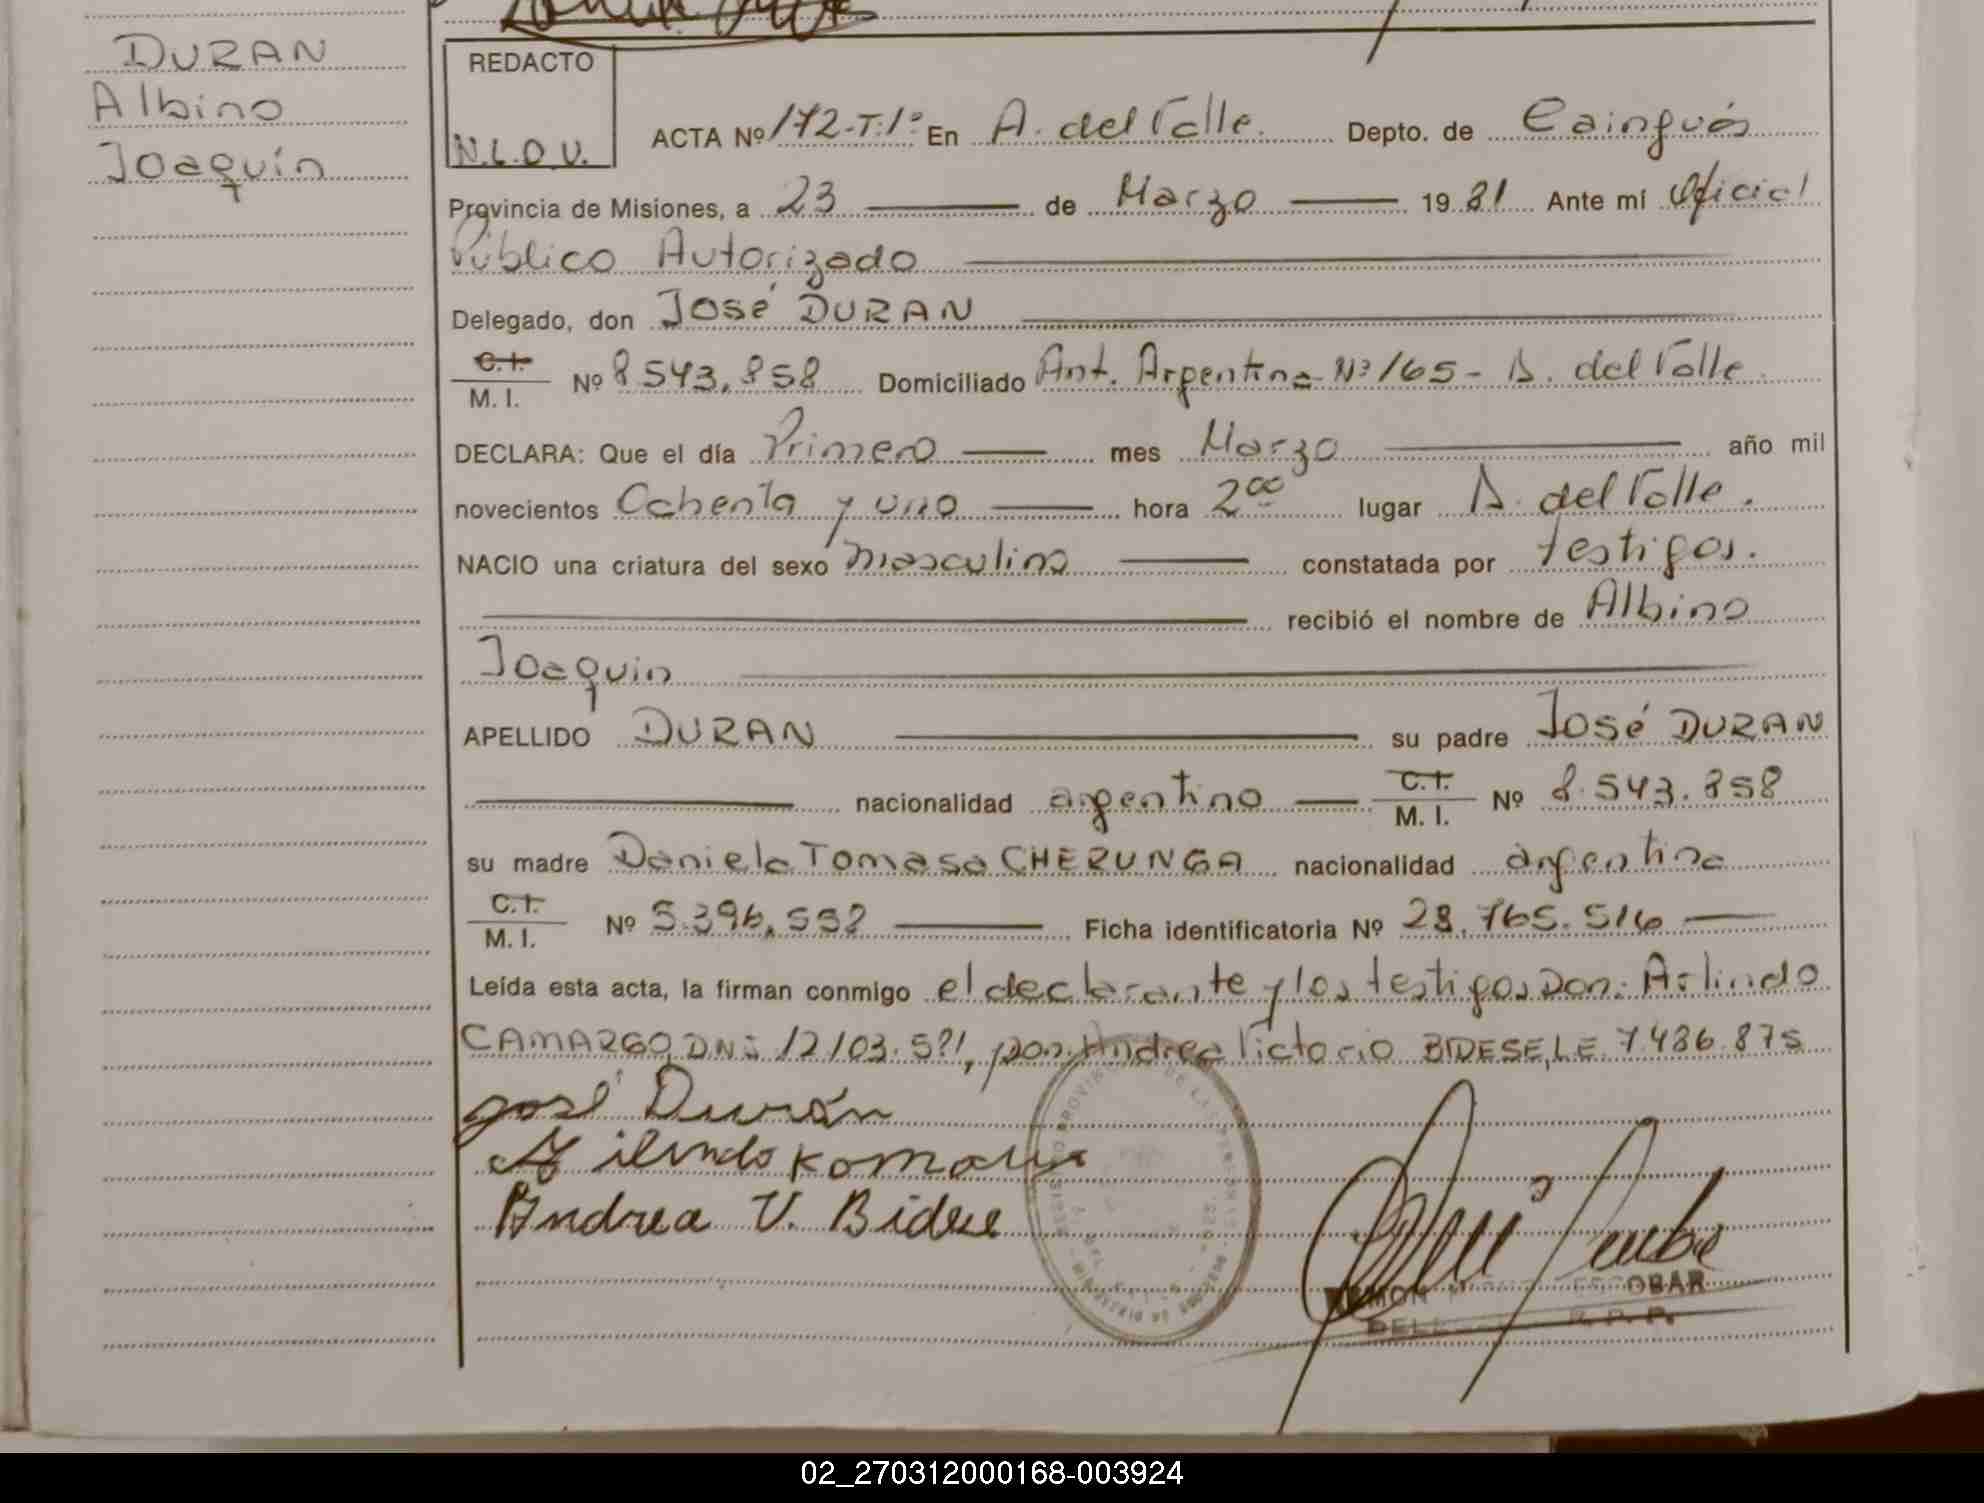 DURAN
Albino
Joaquín
REDACTO
N.L.D.V.
ACTA Nº 172-T.1º En A. del Valle. Depto. de Cainguás
Provincia de Misiones, a 23 de Marzo 19 81 Ante mí Oficial
Público Autorizado
Delegado, don José DURAN
C.I. M. I. Nº 8.543.858 Domiciliado Ant. Argentina Nº 165 - A. del Valle.
DECLARA: Que el día Primero mes Marzo año mil
novecientos Ochenta y uno hora 2⁰⁰ lugar A. del Valle.
NACIO una criatura del sexo masculino constatada por testigos.
recibió el nombre de Albino
Joaquin
APELLIDO DURAN su padre José DURAN
nacionalidad argentino C.I. M. I. Nº 8.543.858
su madre Daniela Tomasa CHERUNGA nacionalidad argentina
C.I. M. I. Nº 5.396.552 Ficha identificatoria Nº 28.765.516
Leída esta acta, la firman conmigo el declarante y los testigos Don: Arlindo
CAMARGO, DNI 12103.591, don: Andrea Victorio BIDESE, LE 7.486.875
José Durán
Andrea V. Bidese
RAMON ESCOBAR
R. P. P.
02_270312000168-003924